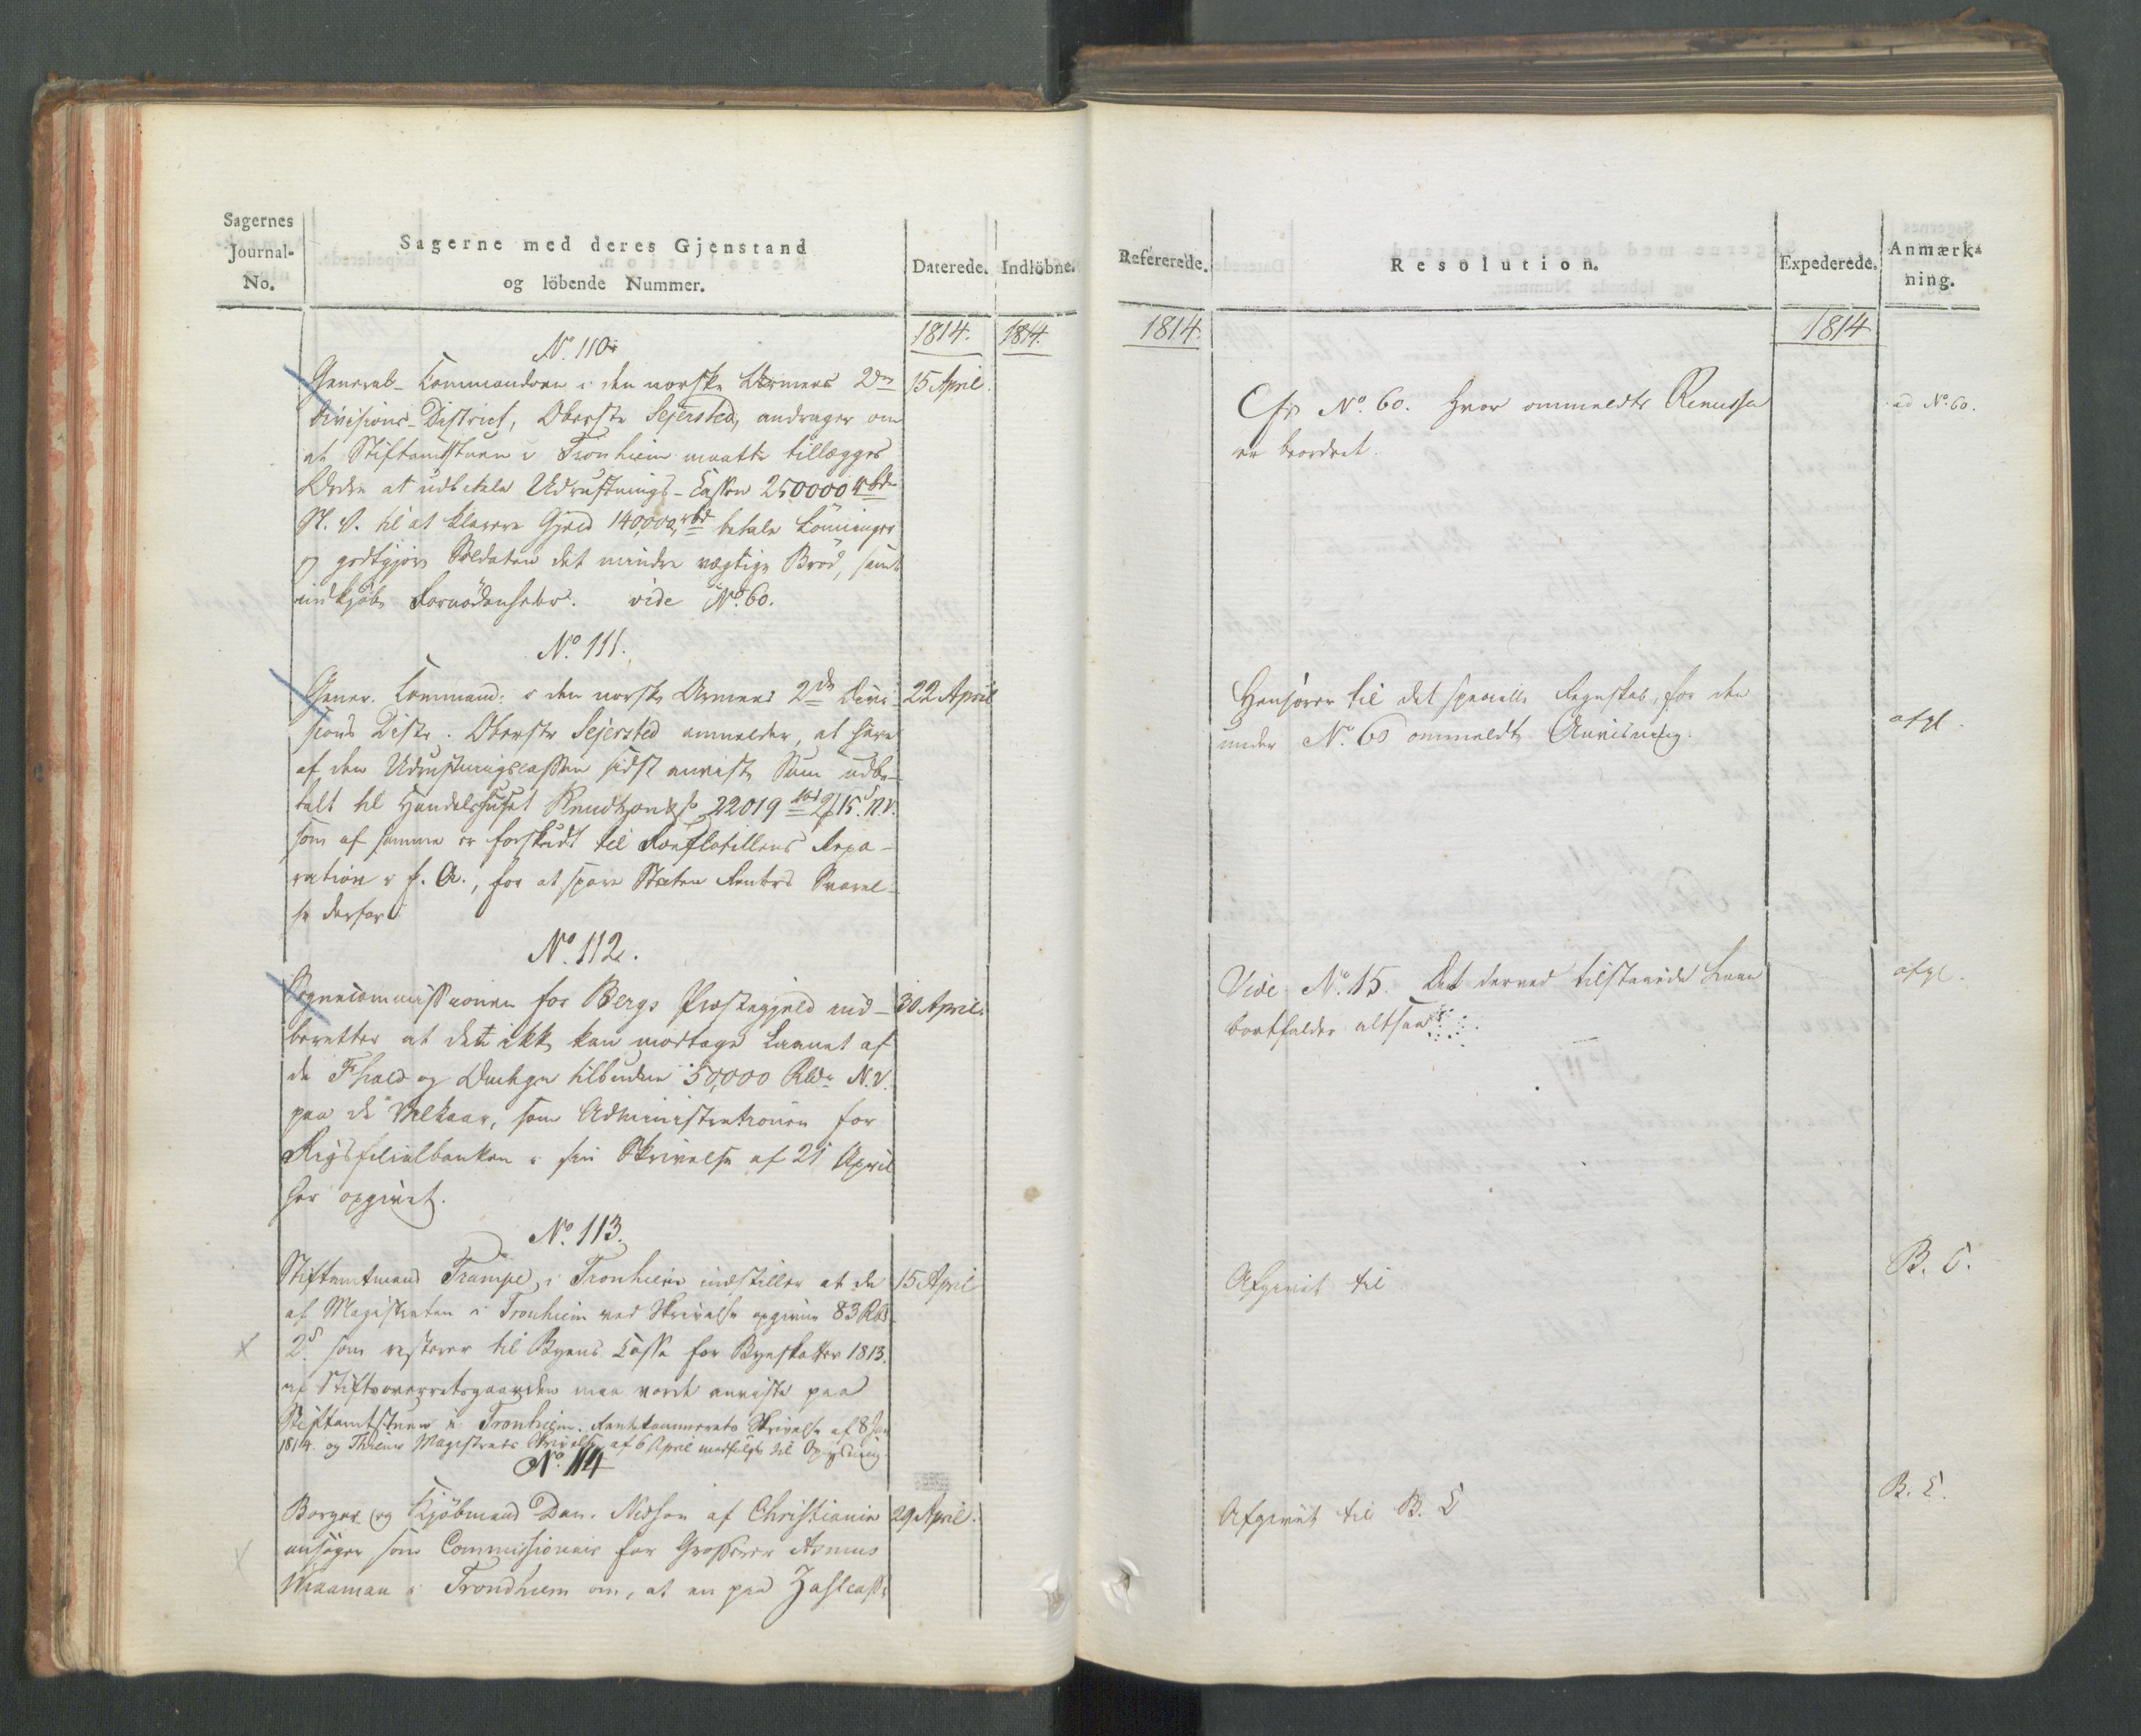 Sagernes
Journal-
No.
Sagerne med deres Gjenstand
og löbende Nummer.
Daterede.
Indlöbne.
1814.
1814.
No. 110
General-Commandoen i den norske Armees 2den
Divisions-District, Oberste Sejersted, andrager om
15 April.
at Stiftamtstuen i Tronhiem maatte tillægges
Ordre at udbetale Udrustnings-Cassen 250000 rbdr
N. V. til at klarere Gjeld 140,000 rbd betale Lönninger
og godtgjöre Soldaten det mindre vægtige Bröd, samt
indkjöbe Fornödenheder. vide No. 60.
No. 111.
Gener. Command: i den norske Armees 2den Divi-
22 April
sions Distr. Oberste Sejersted anmelder, at have
af den Udrustningscassen sidst anviste Sum udbe-
talt til Handelshuset Knudtzon & Co 22019 rbd 2 15 s. N.V.
som af samme er forskudt til Roeflotillens Repa-
ration i f. A., for at spare Staten Renters Svarel-
se derfor.
No. 112.
Sognecommissionen for Bergs Præstegjeld ind-
30 April.
beretter at det ikke kan modtage Laanet af
de Fhald og tilbudne 50,000 Rbdr N.V.
paa de Vilkaar, som Administrationen for
Rigsfilialbanken i sin Skrivelse af 21 April
har opgivet.
No. 113.
Stiftamtmand Trampe i Tronhiem indstiller at de
15 April
af Magistraten i Tronhiem ved Skrivelse opgivne 83 Rbd
2 s. som resterer til Byens Casse for Byeskatter 1813.
af Stiftsoverretsgaarden maa vorde anviste paa
Stiftamtstuen i Tronhiem. Rentekammerets Skrivelse af 8 Jan
1814. og Thiems Magistrats Skrivelse af 6 April medfölge til Oplysning.
No. 114
Borger og Kjöbmand Dan. Nielsen af Christiania
29 April.
ansöger som Commissionair for Grosserer
i Trondhiem om, at en paa Zahlcasse
Refererede.
Resolution.
Expederede.
Anmærk-
ning.
1814.
1814
Cfr. No. 60. hvor ommeldte Remisse
er beordret.
ad No. 60.
Henhörer til det specielle Regnskab, for den
under No. 60 ommeldte Anvisning.
afgl.
Vide No. 15. Det derved tilstaaede Laan
bortfalder altsaa
afgl.
Afgivet til
B. C.
Afgivet til B. C
B. C.